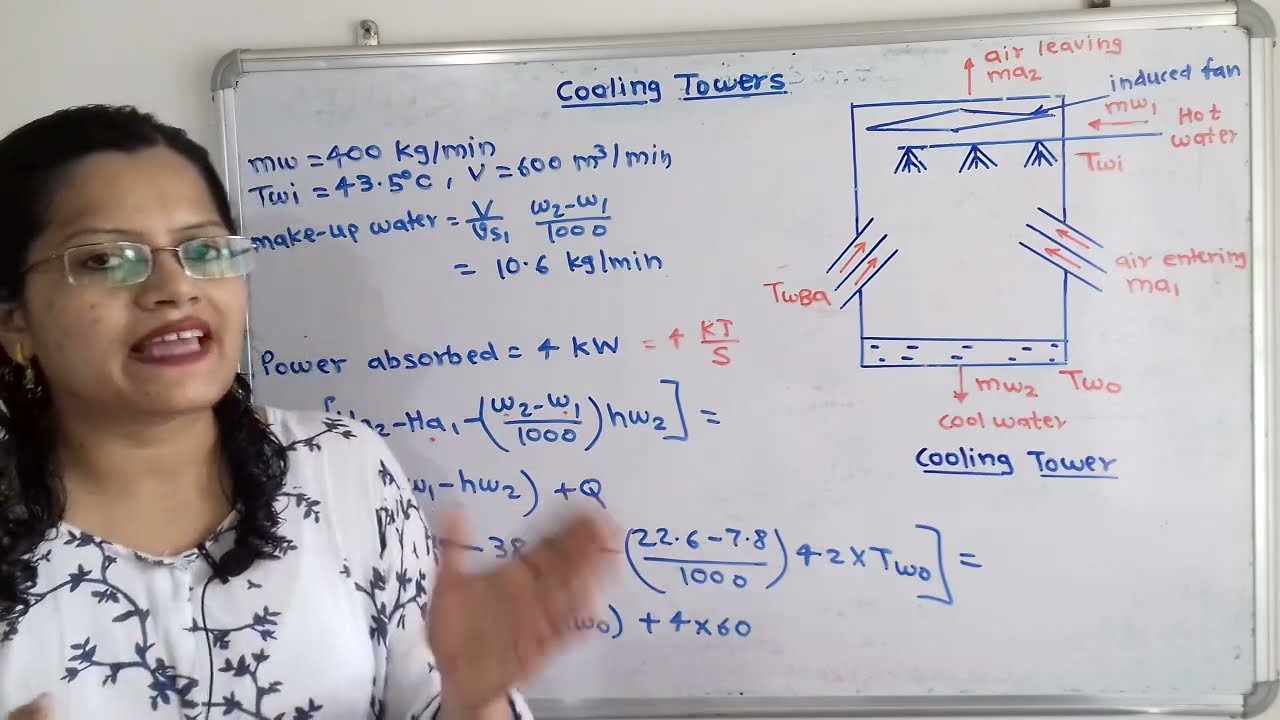 Cooling Towers
mw = 400 kg/min
Twi = 43.5°C, V = 600 m³/min
make-up water = V/υs₁ (ω₂-ω₁)/1000
= 10.6 kg/min
Power absorbed = 4 kW = 4 KJ/S
-Ha₁-((ω₂-ω₁)/1000)hω₂] =
-hω₂) + Q
- 38
-((22.6-7.8)/1000) 4.2×Two] =
) + 4×60
air leaving
ma₂
induced fan
mw₁
Hot
water
Twi
air entering
ma₁
TWBa
mw₂
Two
cool water
Cooling Tower